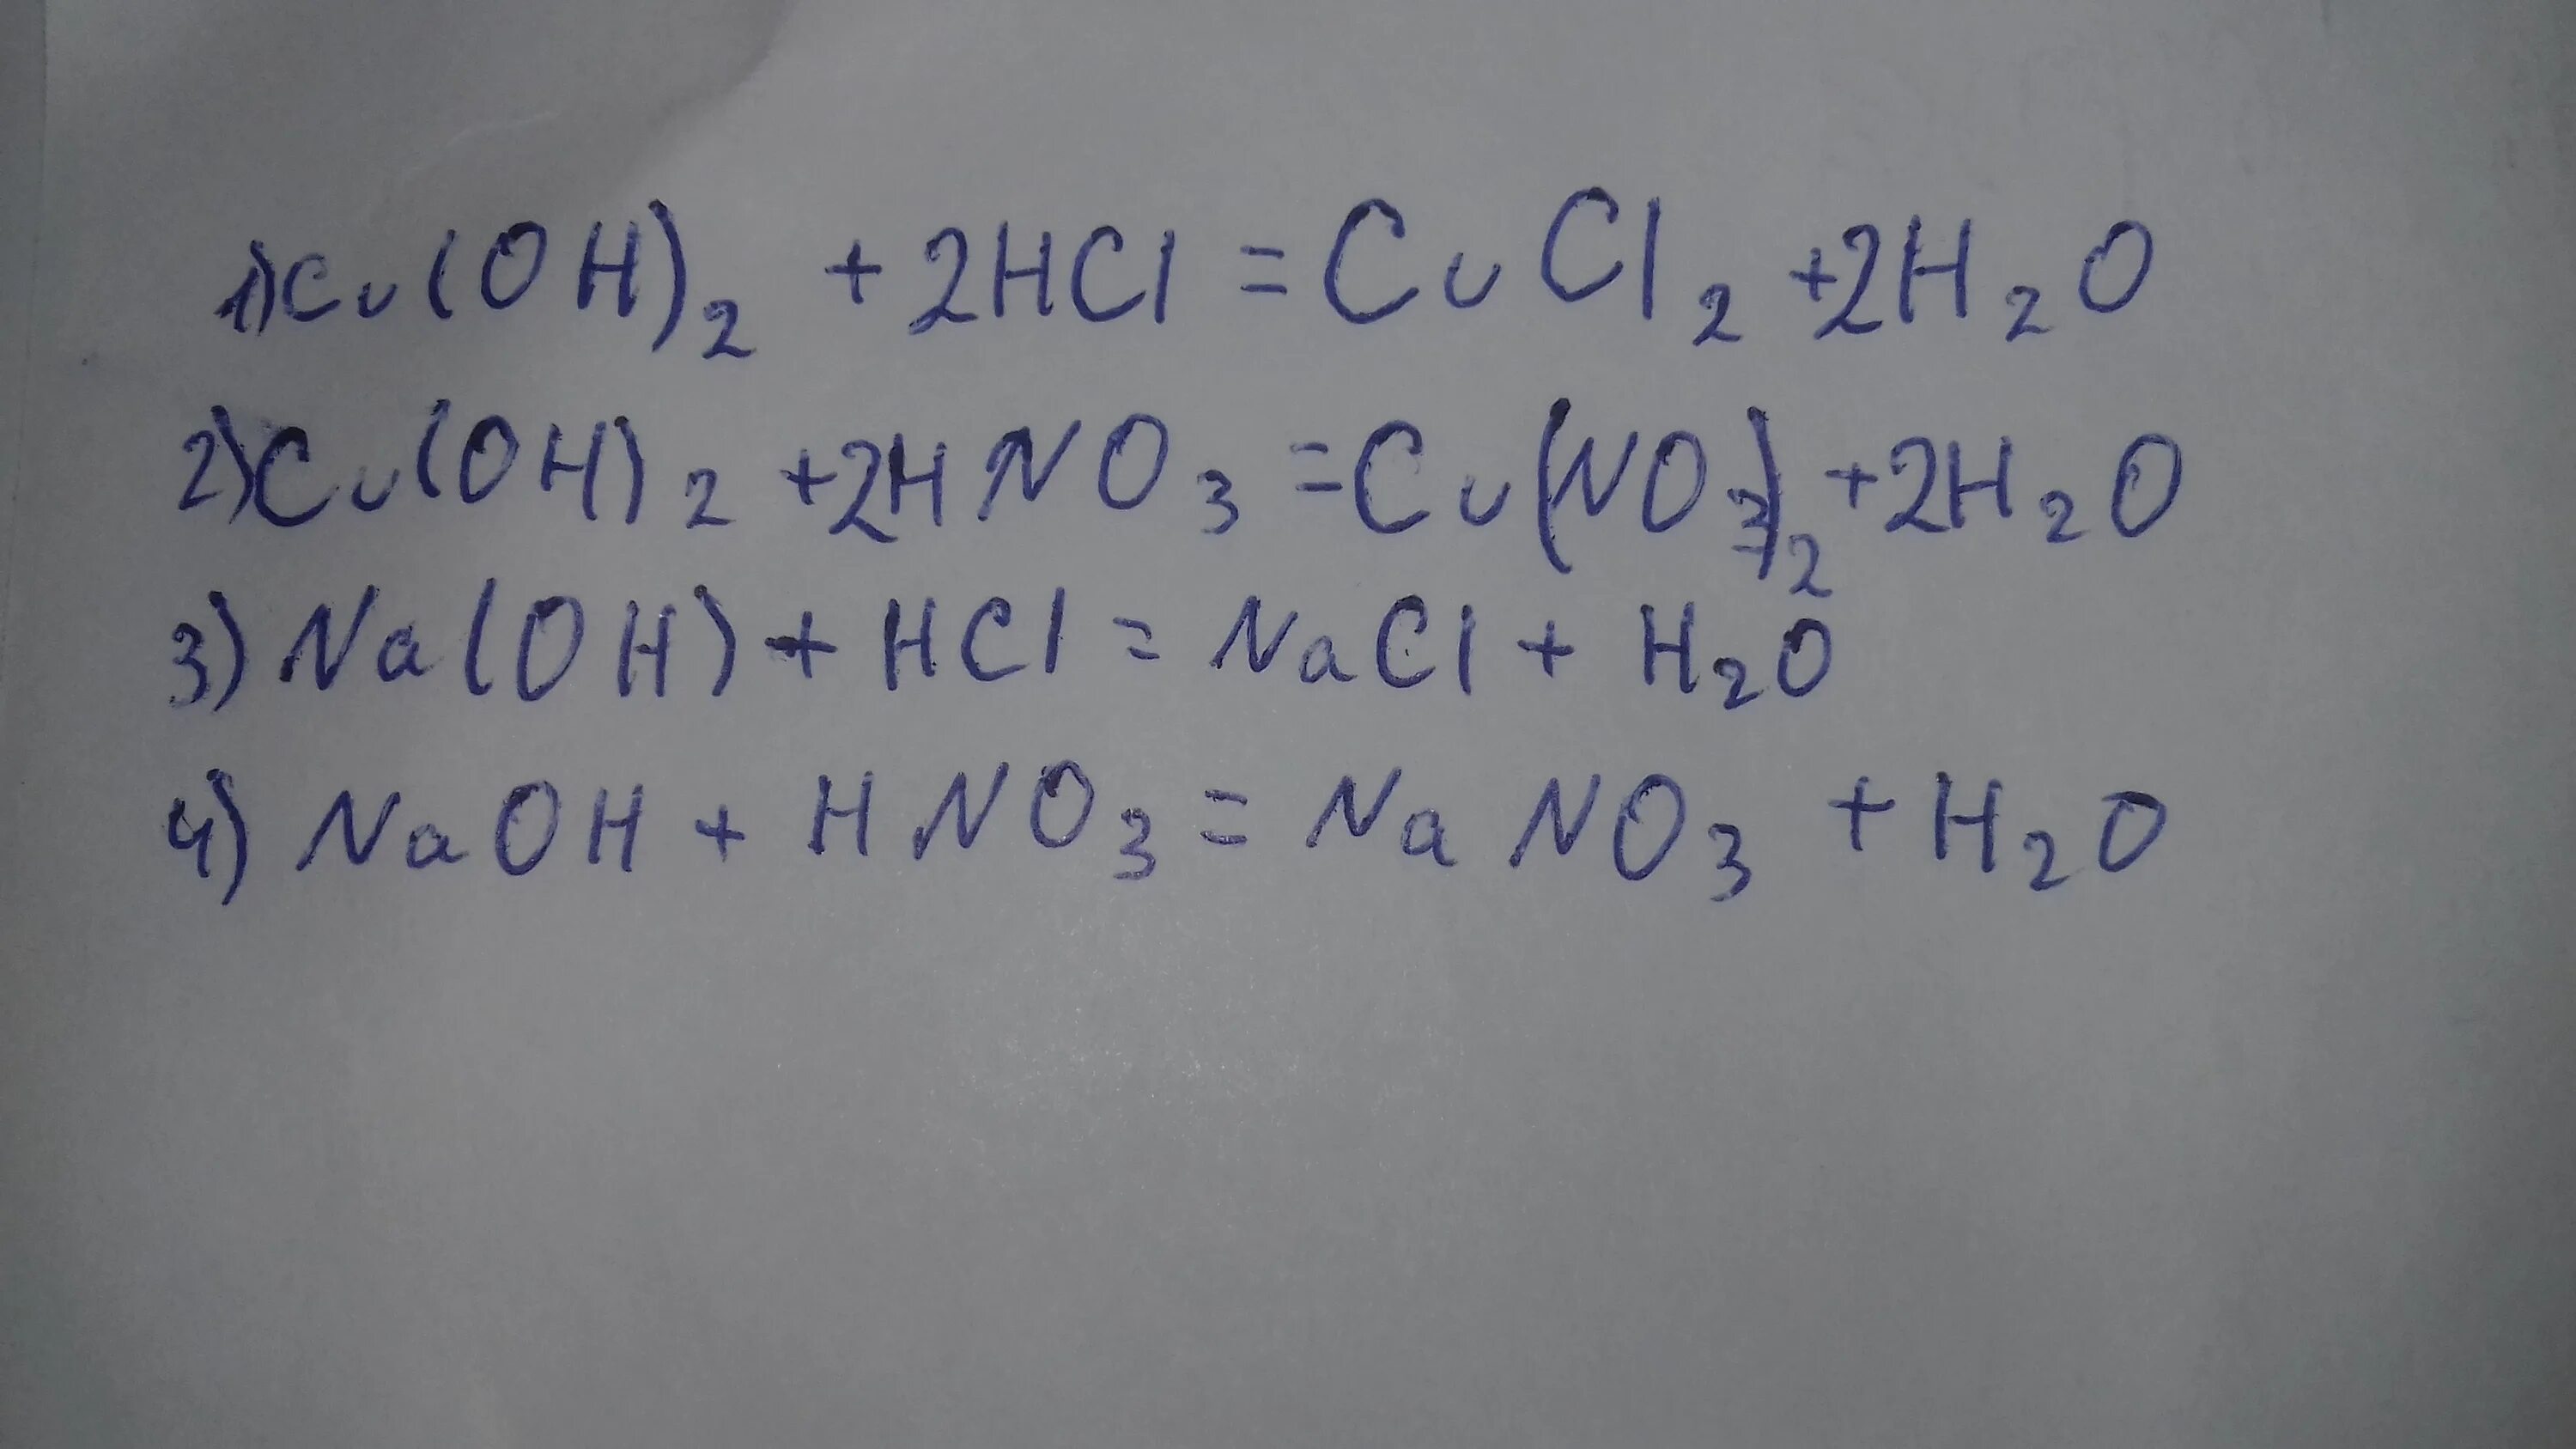 1) Cu(OH)₂ + 2HCl = CuCl₂ + 2H₂O
2) Cu(OH)₂ + 2HNO₃ = Cu(NO₃)₂ + 2H₂O
3) Na(OH) + HCl = NaCl + H₂O
4) NaOH + HNO₃ = NaNO₃ + H₂O